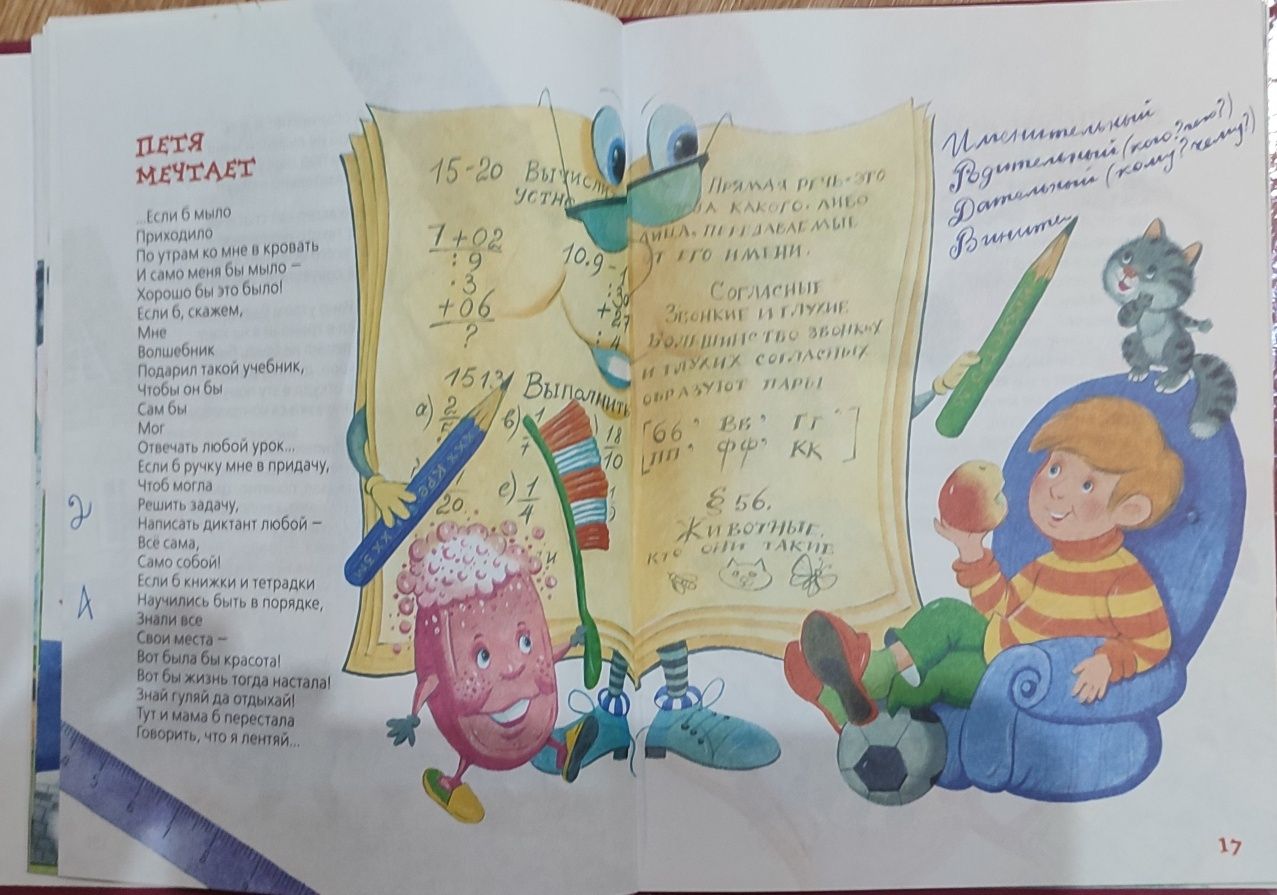 ПЕТЯ
МЕЧТАЕТ
...Если б мыло
Приходило
По утрам ко мне в кровать
И само меня бы мыло –
Хорошо бы это было!
Если б, скажем,
Мне
Волшебник
Подарил такой учебник,
Чтобы он бы
Сам бы
Мог
Отвечать любой урок...
Если б ручку мне в придачу,
Чтоб могла
Решить задачу,
Написать диктант любой –
Всё сама,
Само собой!
Если б книжки и тетрадки
Научились быть в порядке,
Знали все
Свои места –
Вот была бы красота!
Вот бы жизнь тогда настала!
Знай гуляй да отдыхай!
Тут и мама б перестала
Говорить, что я лентяй...
2
4
15-20
УСТНО
7+02
:9
·3
+06
?
10.9
1513
ВЫПОЛНИТЬ
а) 2
в) 1
7
18
10
20
е) 1
4
ПРЯМАЯ РЕЧЬ-ЭТО
КАКОГО-ЛИБО
ЛИЦА, ПЕРЕДАВАЕМЫЕ
ОТ ЕГО ИМЕНИ.
СОГЛАСНЫЕ
ЗВОНКИЕ И ГЛУХИЕ
БОЛЬШИНСТВО ЗВОНКИХ
И ГЛУХИХ СОГЛАСНЫХ
ОБРАЗУЮТ ПАРЫ
[бб' ВВ' ГГ']
[ПП' ФФ' КК]
§ 56.
ЖИВОТНЫЕ.
КТО ОНИ ТАКИЕ
Именительный
Родительный (кого? чего?)
Дательный (кому? чему?)
Вините
17